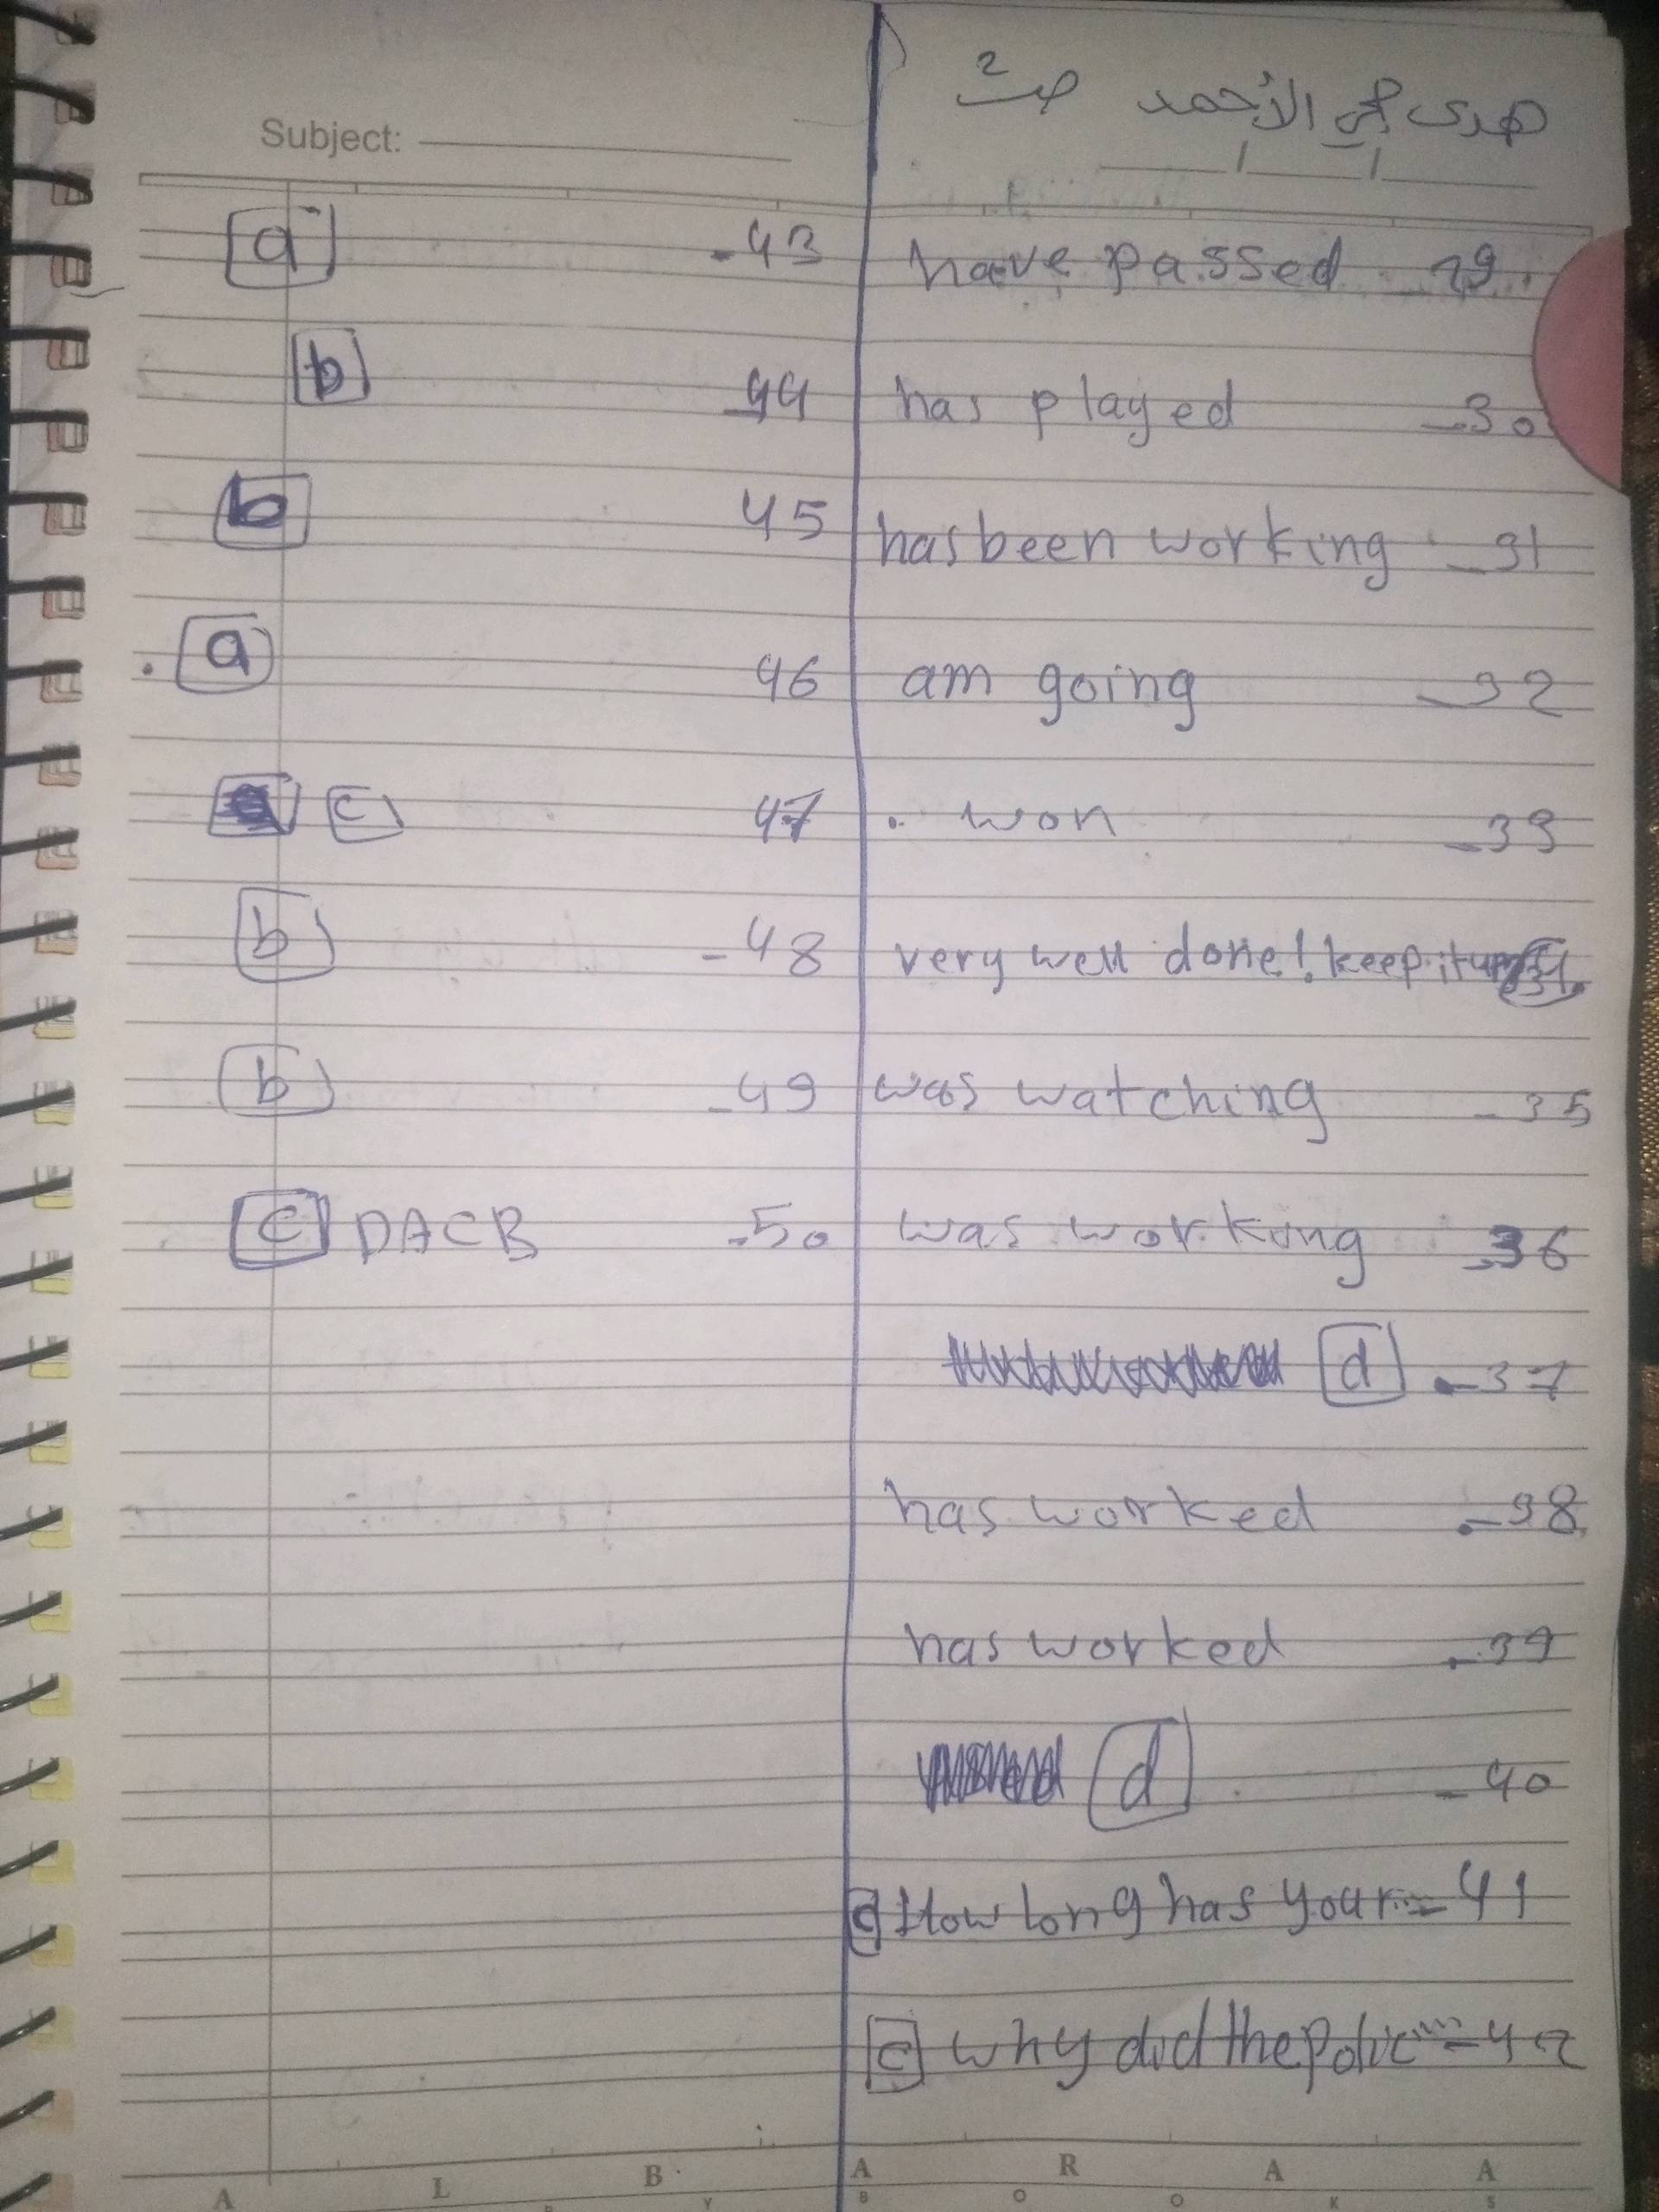 هدى الأحمد ص2
Subject:
have passed 29
has played -30
has been working -31
am going -32
won -33
very well done! keep it up 34
was watching -35
was working 36
d -37
has worked -38
has worked -39
d -40
d How long has your... - 41
c why did the polic... - 42
a -43
b -44
b 45
a 46
c 47
b -48
b -49
c DACB -50
A L B A R A A
B O O K S